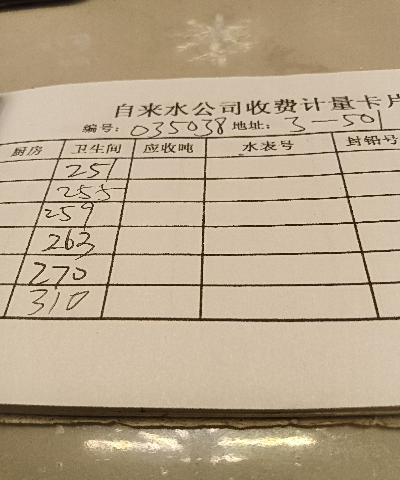 自来水公司收费计量卡片
编号: 035038 地址: 3—501
厨房 卫生间 应收吨 水表号 封铅号
251
255
259
263
270
310